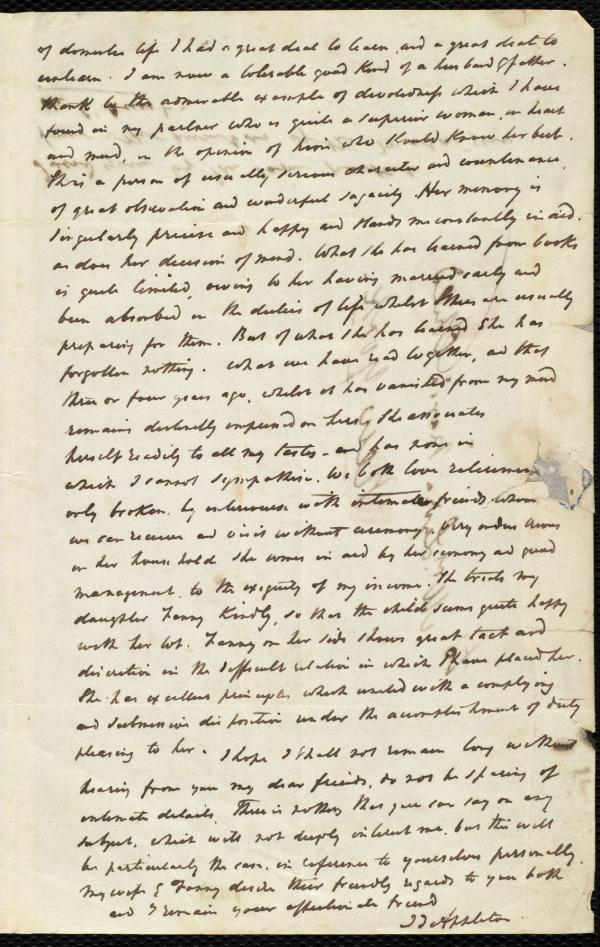 of domestic life I had a great deal to learn, and a great deal to
unlearn. I am now a tolerable good kind of a husband & father.
thank to the admirable example of devotedness which I have
found in my partner who is quite a superior woman, in heart
and mind, in the opinion of him who should know her best.
She is a person of usually serious character and countenance,
of great observation and wonderful sagacity. Her memory is
singularly precise and happy and stands me constantly in aid.
as does her decision of mind. What she has learned from books
is quite limited, owing to her having married early and
been absorbed in the duties of life whilst others are usually
preparing for them. But of what she has learned she has
forgotten nothing. What we have read together, and that
three or four years ago, whilst it has vanished from my mind
remains distinctly impressed on hers. She associates
herself readily to all my tastes - and has none in
which I cannot sympathise. We both love retirement
only broken by intercourse with intimate friends whom
we can receive and visit without ceremony. Very orderly
in her household she comes in aid by her economy and good
management, to the exiguity of my income. She treats my
daughter Fanny kindly, so that the child seems quite happy
with her lot. Fanny on her side shows great tact and
discretion in the difficult relation in which I have placed her.
She has excellent principles which united with a complying
and submissive disposition render the accomplishment of duty
pleasing to her. I hope I shall not remain long without
hearing from you my dear friends, do not be sparing of
intimate details. There is nothing that you can say on any
subject, which will not deeply interest me, but this will
be particularly the case, in reference to yourselves personally.
My wife & Fanny desire their friendly regards to you both
and I remain your affectionate friend
J J Appleton